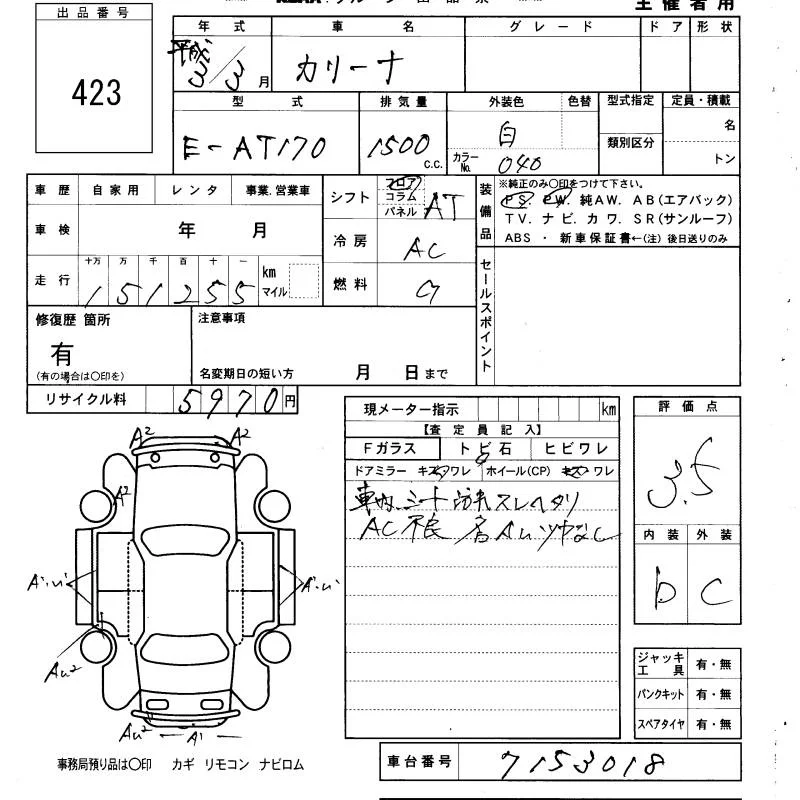 主催者用
出品番号
423
年式 車名 グレード ドア 形状
平成 3/3月 カリーナ
型式 排気量 外装色 色替 型式指定 定員・積載
E-AT170 1500 c.c. 白 カラーNo. 040 類別区分 名 トン
車歴 自家用 レンタ 事業.営業車
車検 年 月
走行 十万 万 千 百 十 一 km マイル
151255
シフト フロア コラム パネル AT
冷房 AC
燃料 G
装備品
※純正のみ〇印をつけて下さい。
PS. PW. 純AW. AB(エアバック)
TV. ナビ. カワ. SR(サンルーフ)
ABS ・ 新車保証書←(注) 後日送りのみ
セールスポイント
修復歴 箇所
有
(有の場合は〇印を)
注意事項
名変期日の短い方 月 日まで
リサイクル料 5970円
現メーター指示 km
【査定員記入】
Fガラス トビ石 ヒビワレ
ドアミラー キズワレ ホイール(CP) キズワレ
車内
AC不良
評価点
3.5
内装 外装
D C
A2 A2
A2
Au2
Au2 A1
ジャッキ工具 有・無
パンクキット 有・無
スペアタイヤ 有・無
事務局預り品は〇印 カギ リモコン ナビロム
車台番号 7153018